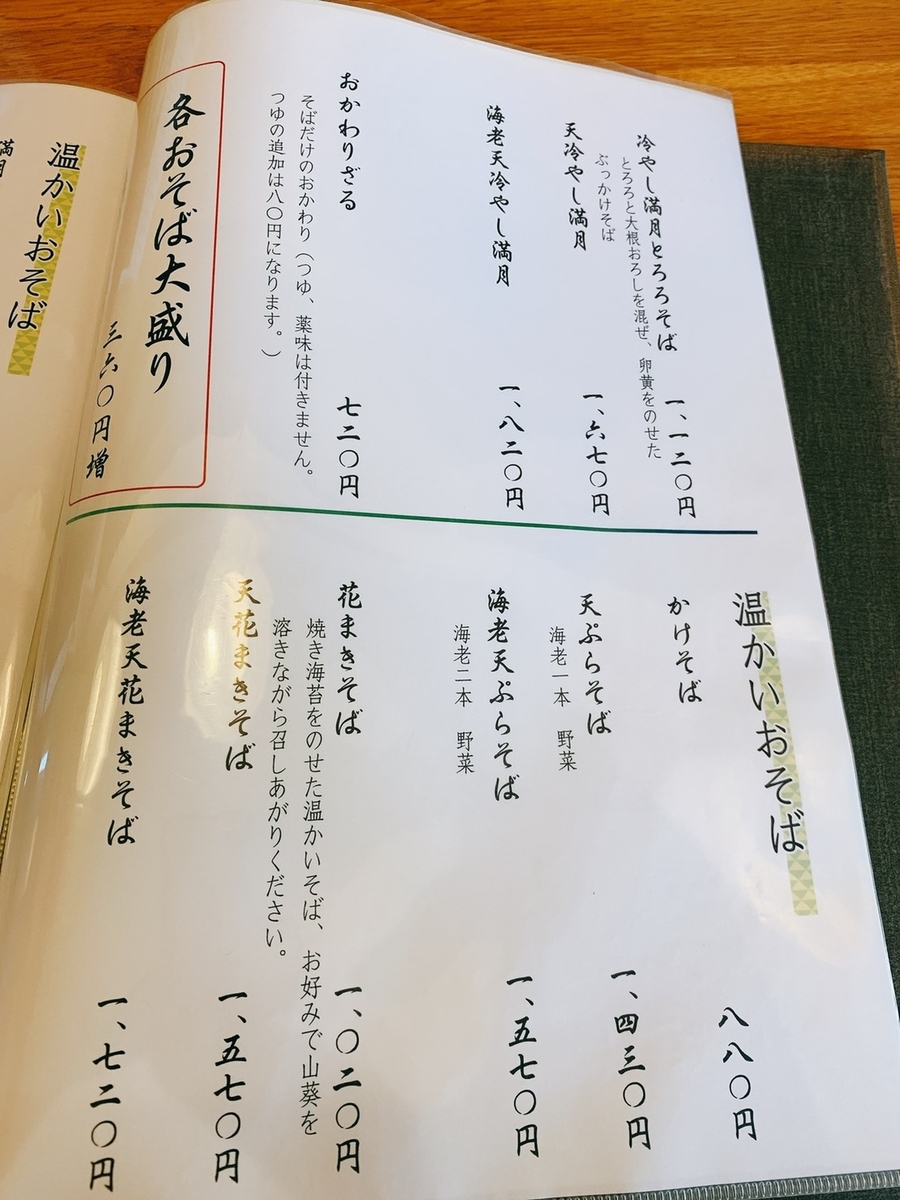 冷やし満月とろろそば 一、一二〇円
とろろと大根おろしを混ぜ、卵黄をのせた
ぶっかけそば
天冷やし満月 一、六七〇円
海老天冷やし満月 一、八二〇円
おかわりざる 七二〇円
そばだけのおかわり（つゆ、薬味は付きません。
つゆの追加は八〇円になります。）
各おそば大盛り
三六〇円増
温かいおそば
かけそば 八八〇円
天ぷらそば 一、四三〇円
海老一本 野菜
海老天ぷらそば 一、五七〇円
海老二本 野菜
花まきそば 一、〇二〇円
焼き海苔をのせた温かいそば、お好みで山葵を
溶きながら召しあがりください。
天花まきそば 一、五七〇円
海老天花まきそば 一、七二〇円
温かいおそば
満月